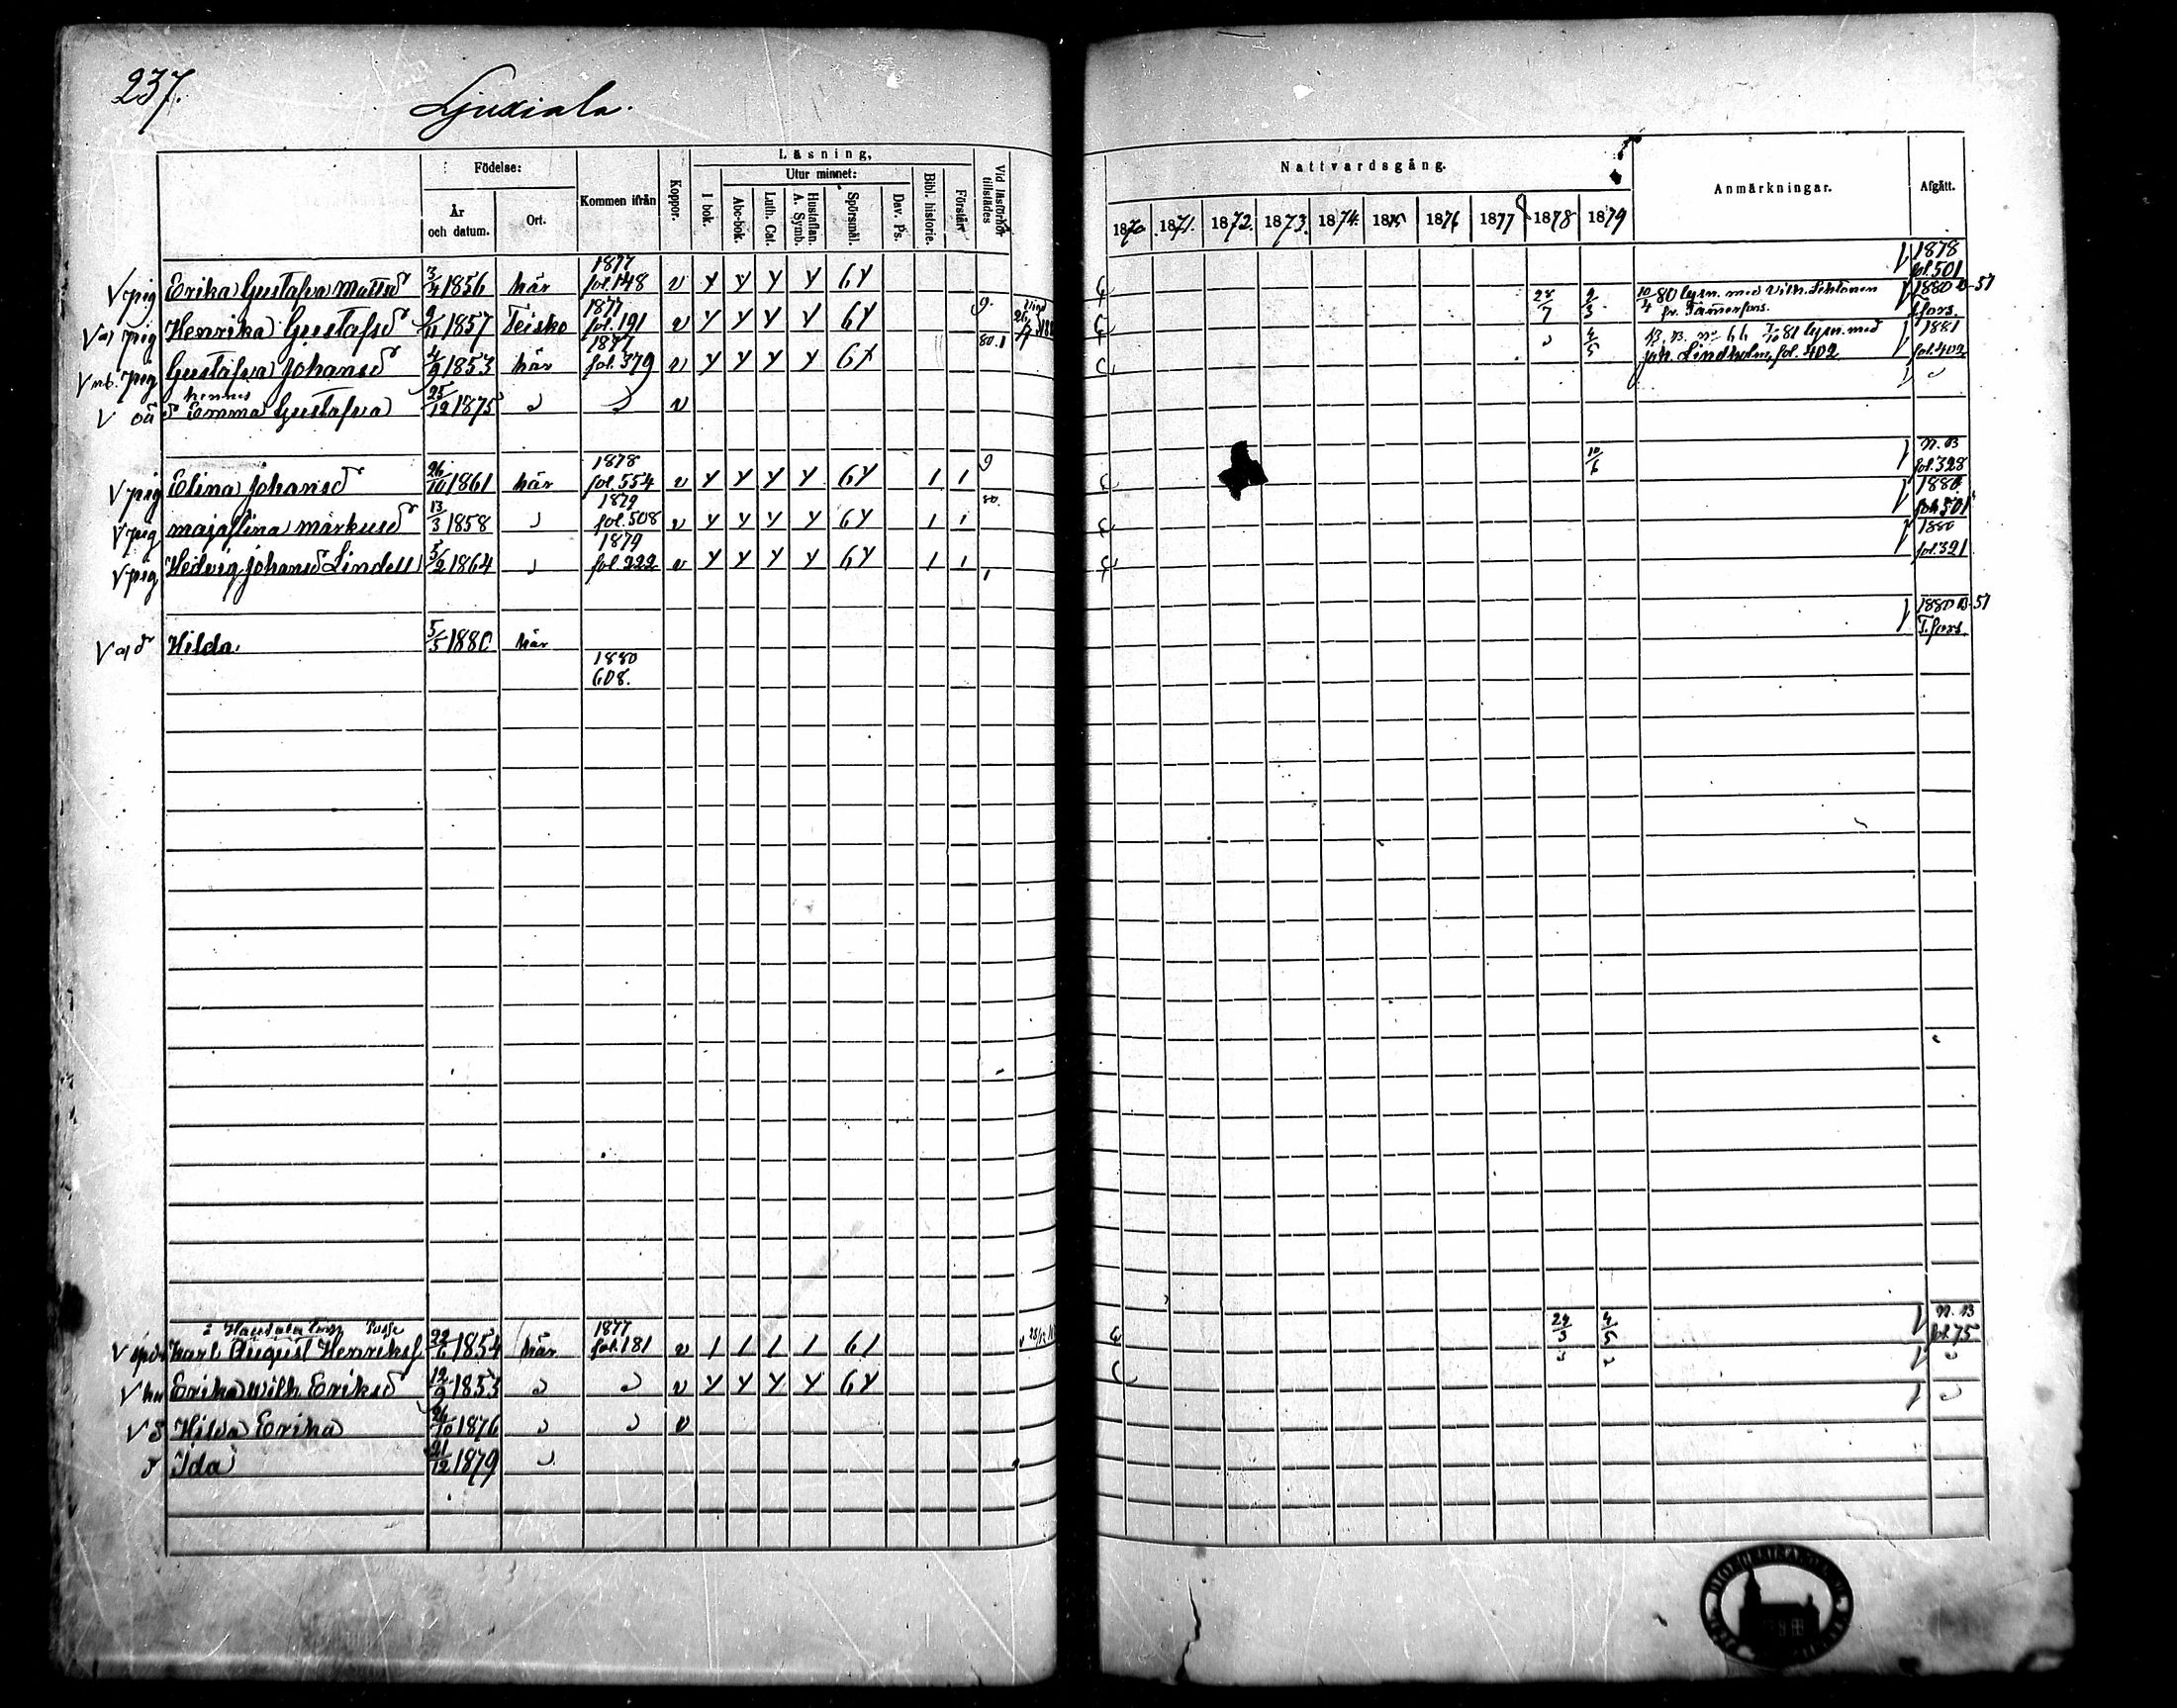 237.
Ljuxiala.
Födelse:
År och datum.
Ort.
Kommen ifrån
Koppor.
Läsning,
I bok.
Utur minnet:
Abc-bok.
Luth. Cat.
Hustaflan. A. Symb.
Spörsmål.
Dav. Ps.
Bibl. historie.
Förstår
Vid läsförhör tillstädes
Nattvardsgång.
1870 1871. 1872. 1873. 1874. 1875 1876 1877 1878 1879
Anmärkningar.
Afgått.
V pig Erika Gustafva Mattsd 3/4 1856 här 1877 fol. 148 v Y Y Y Y 6Y 1878 fol. 501
pig Henrika Gustafsd 9/11 1857 Teisko 1877 fol. 191 v Y Y Y Y 6Y 9. 28/7 2/3 10/4 80 lysn. med Vilh. Lehtonen fr. Tammerfors. 1880 B-51 T.fors.
V pig Gustafva Johansd 4/9 1853 här 1877 fol. 379 v Y Y Y Y 6Y 80. 4/5 N. B. no 66 80 lysn. med Joh. Lindholm, fol. 402 1881 fol. 402
V oä d hennes Emma Gustafva 25/12 1875 " " v "
V pig Elina Johansd 26/10 1861 här 1878 fol. 554 v Y Y Y Y 6Y 1 1 9 10/6 N. B fol. 328
V pig Majastina Markusd 13/3 1858 " 1879 fol. 508 v Y Y Y Y 6Y 1 1 80. 1880 fol. 501
V pig Hedvig Johansd Lindell 5/2 1864 " 1879 fol. 222 v Y Y Y Y 6Y 1 1 1 1880 fol. 321
V d Hilda. 5/5 1880 här 1880 B-51 T.fors.
1880
608.
V Karl August Henrikss 22/6 1854 här 1877 fol. 181 v 1 1 1 1 61 24/3 4/5 N. B fol. 75
V hu Erika Wilh. Eriksd 12/9 1853 " " v Y Y Y Y 6Y " " "
V d Hilda Erika 24/10 1876 " " v "
d Ida 21/12 1879 "